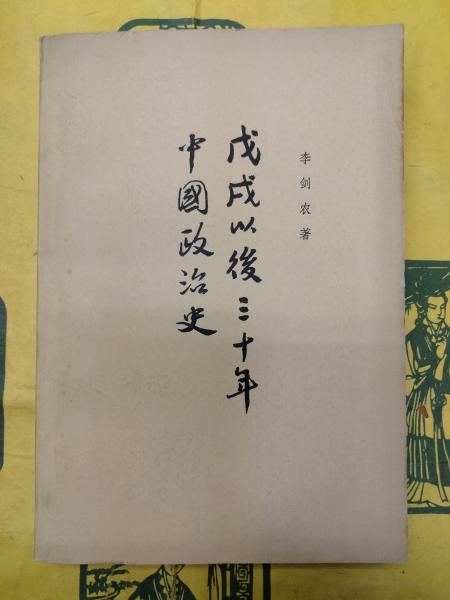 李剑农著
戊戌以後三十年
中國政治史